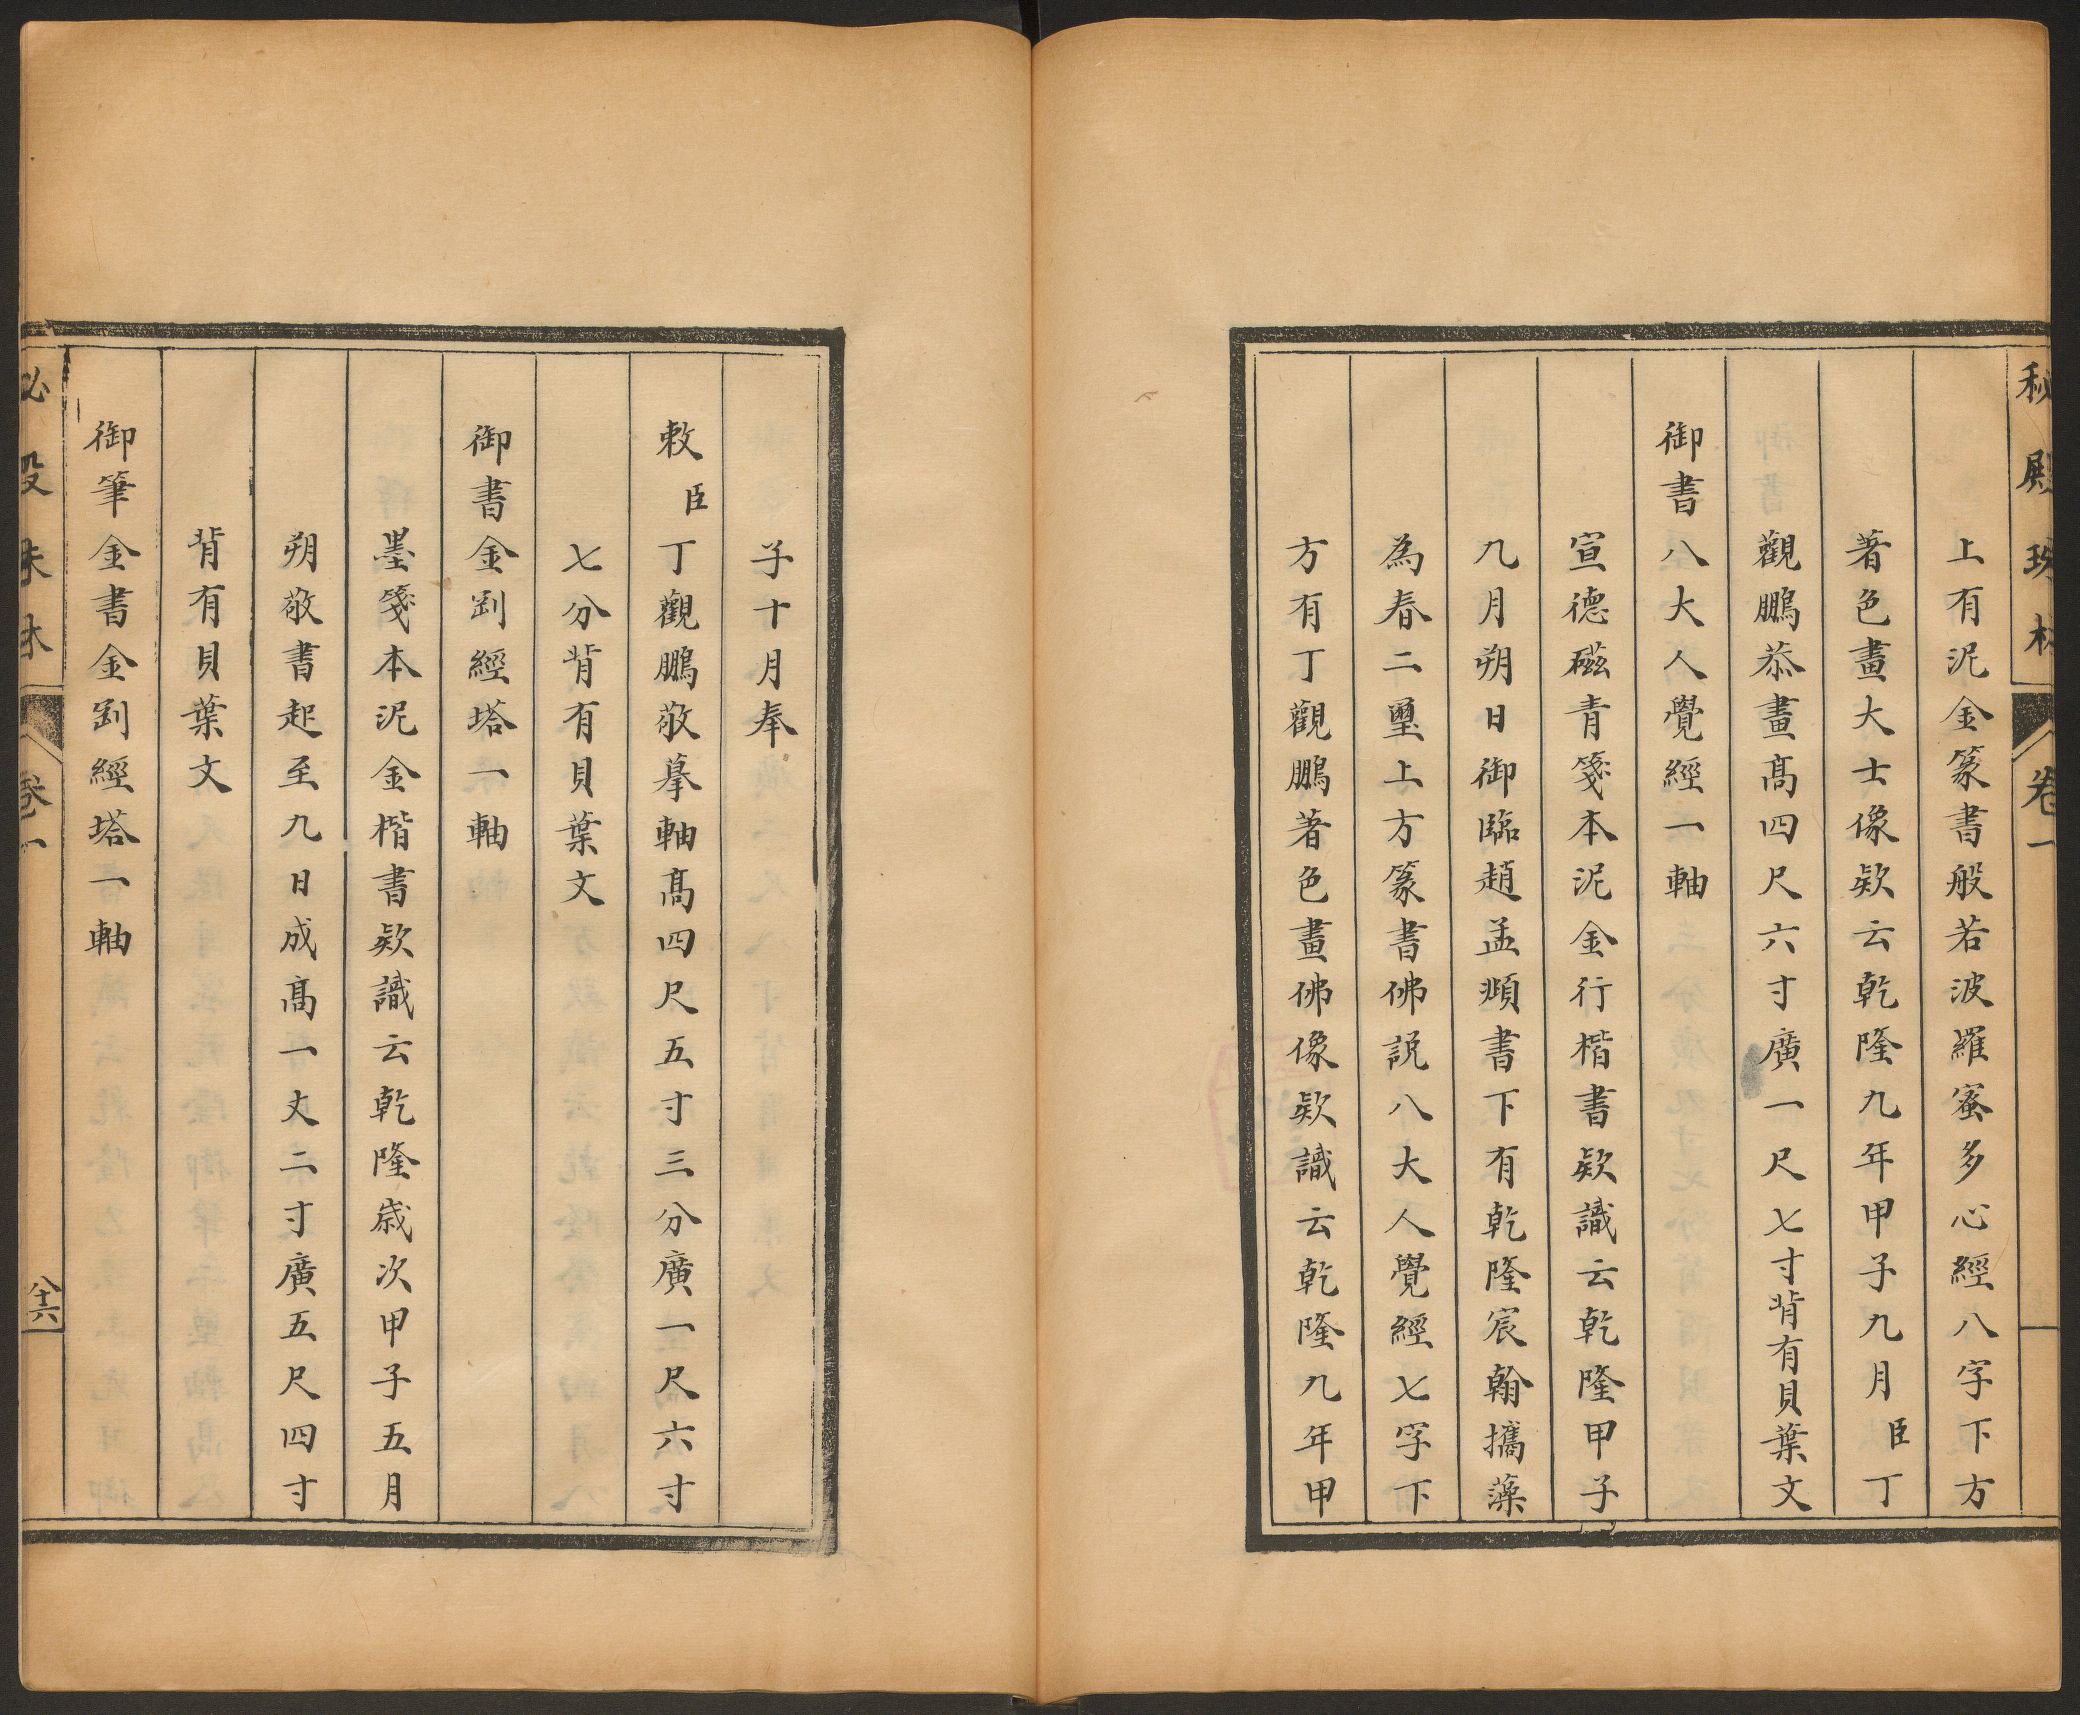 秘殿珠林 卷一
上有泥金篆書般若波羅蜜多心經八字下方
著色畫大士像欵云乾隆九年甲子九月臣丁
觀鵬恭畫高四尺六寸廣一尺七寸背有貝葉文
御書八大人覺經一軸
宣德磁青箋本泥金行楷書欵識云乾隆甲子
九月朔日御臨趙孟頫書下有乾隆宸翰攡藻
為春二璽上方篆書佛説八大人覺經七字下
方有丁觀鵬著色畫佛像欵識云乾隆九年甲
子十月奉
敕臣丁觀鵬敬摹軸高四尺五寸三分廣一尺六寸
七分背有貝葉文
御書金剛經塔一軸
墨箋本泥金楷書欵識云乾隆歲次甲子五月
朔敬書起至九日成高一丈二寸廣五尺四寸
背有貝葉文
御筆金書金剛經塔一軸
秘殿珠林 卷一 八十六